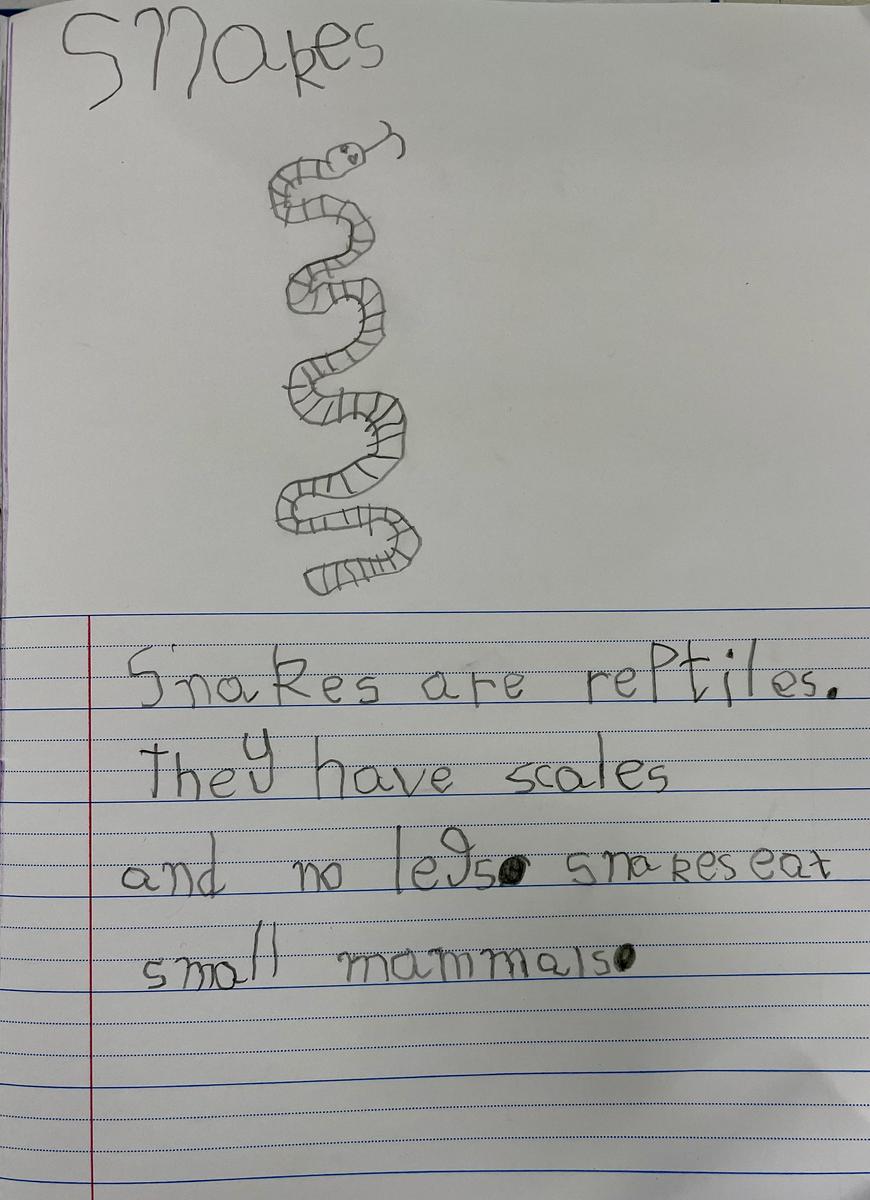 Snakes
Snakes are reptiles.
They have scales
and no legs. snakes eat
small mammals.